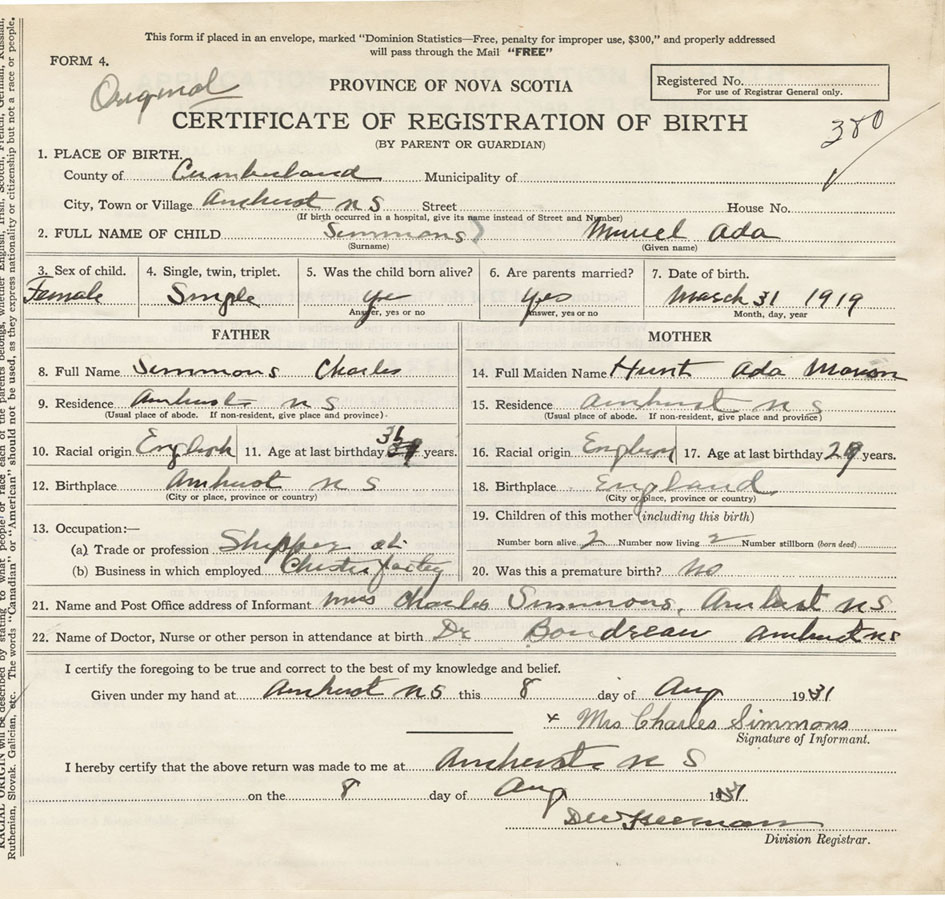 This form if placed in an envelope, marked "Dominion Statistics—Free, penalty for improper use, $300," and properly addressed
will pass through the Mail "FREE"
FORM 4.
Original
PROVINCE OF NOVA SCOTIA
Registered No.
For use of Registrar General only.
CERTIFICATE OF REGISTRATION OF BIRTH
380
(BY PARENT OR GUARDIAN)
1. PLACE OF BIRTH.
County of Cumberland Municipality of
City, Town or Village Amherst N S Street House No.
(If birth occurred in a hospital, give its name instead of Street and Number)
2. FULL NAME OF CHILD Simmons Muriel Ada
(Surname) (Given name)
3. Sex of child. 4. Single, twin, triplet. 5. Was the child born alive? 6. Are parents married? 7. Date of birth.
Female Single yes Yes March 31 1919
Answer, yes or no Answer, yes or no Month, day, year
FATHER MOTHER
8. Full Name Simmons Charles 14. Full Maiden Name Hunt Ada Marion
9. Residence Amherst N S 15. Residence Amherst N S
(Usual place of abode. If non-resident, give place and province) (Usual place of abode. If non-resident, give place and province)
10. Racial origin English 11. Age at last birthday 36 years. 16. Racial origin English 17. Age at last birthday 29 years.
12. Birthplace Amherst N S 18. Birthplace England
(City or place, province or country) (City or place, province or country)
13. Occupation:— 19. Children of this mother (including this birth)
(a) Trade or profession Shipper at Number born alive 2 Number now living 2 Number stillborn (born dead)
(b) Business in which employed 20. Was this a premature birth? no
21. Name and Post Office address of Informant Mrs Charles Simmons, Amherst N S
22. Name of Doctor, Nurse or other person in attendance at birth Dr Boudreau Amherst N S
I certify the foregoing to be true and correct to the best of my knowledge and belief.
Given under my hand at Amherst N S this 8 day of Aug 1931
x Mrs Charles Simmons
Signature of Informant.
I hereby certify that the above return was made to me at Amherst N S
on the 8 day of Aug 1931
Freeman
Division Registrar.
RACIAL ORIGIN will be described by stating to what people or race each of the parents belongs, whether English, Irish, Scotch, French, German, Russian,
Ruthenian, Slovak, Galician, etc. The words "Canadian" or "American" should not be used, as they express nationality or citizenship but not a race or people.